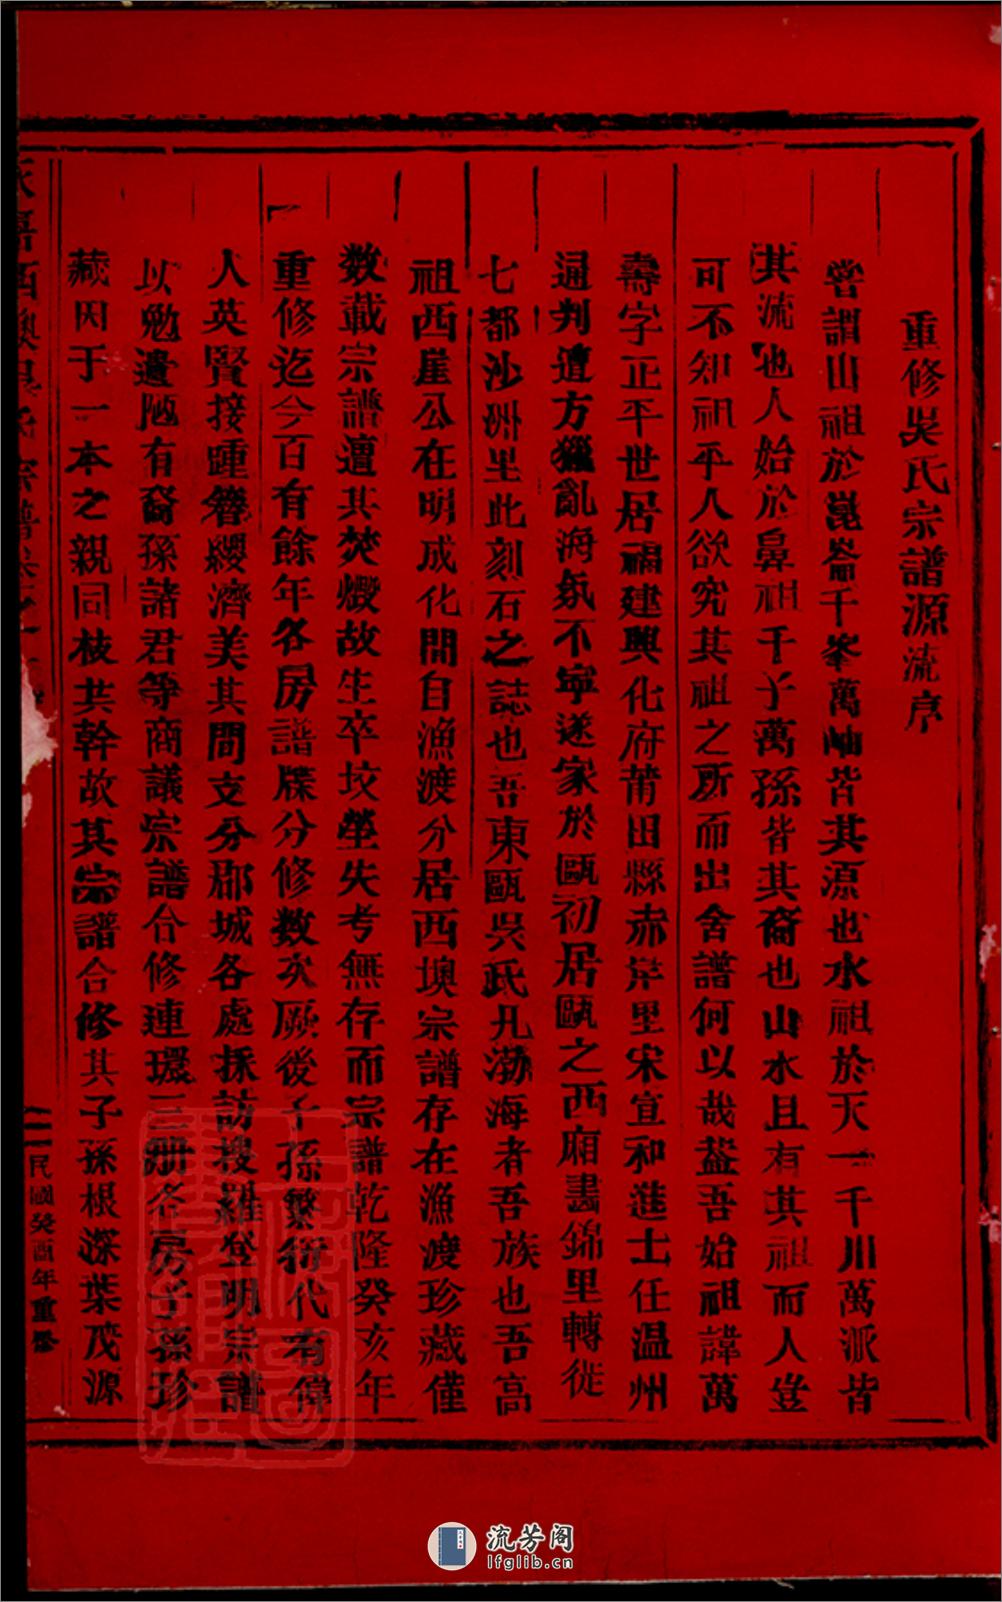 重修吳氏宗譜源流序
嘗謂山祖於崑崙千峯萬岫皆其源也水祖於天一千川萬派皆
其流也人始於鼻祖千子萬孫皆其裔也山水且有其祖而人豈
可不知祖乎人欲究其祖之所而出舍譜何以哉葢吾始祖諱萬
壽字正平世居福建興化府莆田縣赤岸里宋宣和進士任温州
通判遭方獵亂海氛不寧遂家於甌初居甌之西廂晝錦里轉徙
七都沙洲里此刻石之誌也吾東甌吳氏凡渤海者吾族也吾高
祖西崖公在明成化間自漁渡分居西墺宗譜存在漁渡珍藏僅
数載宗譜遭其焚燬故生卒坟塋失考無存而宗譜乾隆癸亥年
重修迄今百有餘年各房譜牒分修数次厥後子孫繁衍代有偉
人英賢接踵簪纓濟美其間支分郡城各處採訪搜羅登明宗譜
以勉遺陋有裔孫諸君等商議宗譜合修連環三册各房子孫珍
藏因于一本之親同枝共幹故其宗譜合修其子孫根深葉茂源
西墺吳氏宗譜卷之一
民國癸酉年重修
流芳阁
lfglib.cn